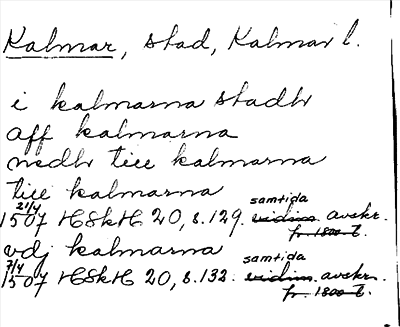 Kalmar, stad, Kalmar l.
i kalmarna stadh
aff kalmarna
nedh till kalmarna
till kalmarna
samtida
21/4 1507 HSkH 20, s. 129. vidim. avskr.
fr. 1800-t.
vdj kalmarna
samtida
7/4 1507 HSkH 20, s. 132. vidim. avskr.
fr. 1800-t.